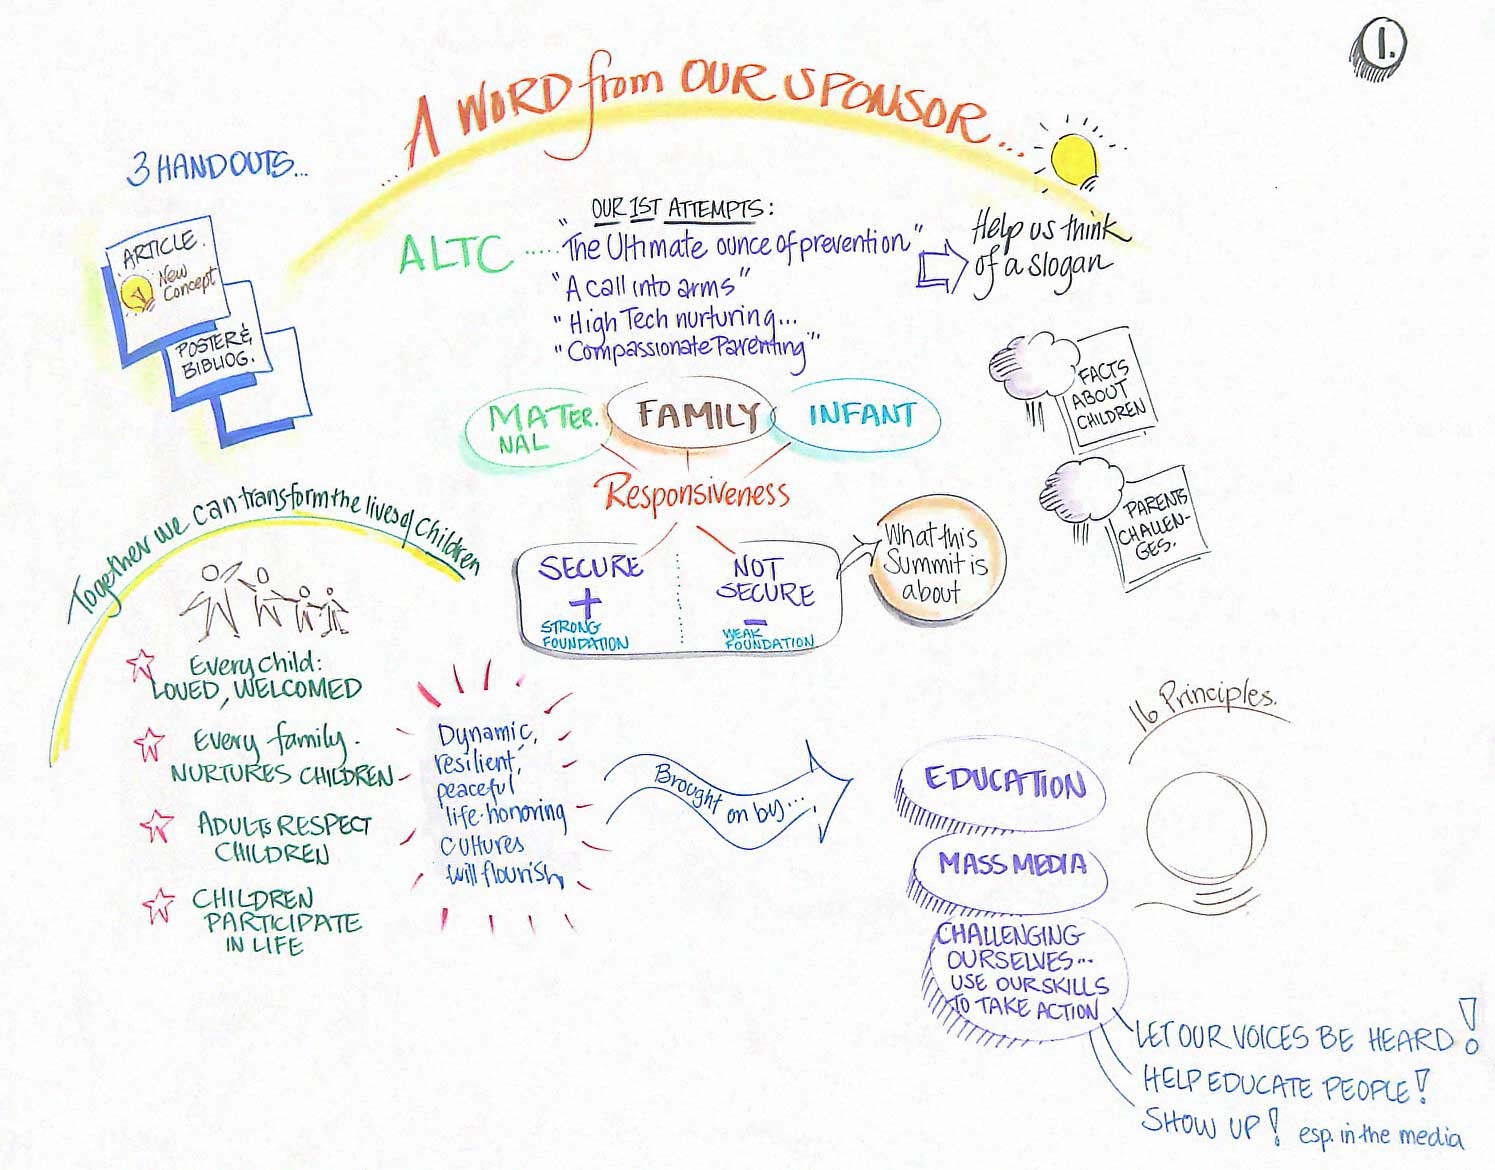 1.
A WORD from OUR SPONSOR...
3 HANDOUTS...
ARTICLE.
New
Concept
POSTER &
BIBLIOG.
ALTC .....
OUR 1ST ATTEMPTS:
"The Ultimate ounce of prevention"
"A call into arms"
"High Tech nurturing...
"Compassionate Parenting"
Help us think
of a slogan
FACTS
ABOUT
CHILDREN
PARENTS
CHALLEN-
GES.
MATER.
NAL
FAMILY
INFANT
Responsiveness
SECURE
+
STRONG
FOUNDATION
NOT
SECURE
-
WEAK
FOUNDATION
What this
Summit is
about
Together we can transform the lives of Children
Every Child:
LOVED, WELCOMED
Every family.
NURTURES CHILDREN
ADULTS RESPECT
CHILDREN
CHILDREN
PARTICIPATE
IN LIFE
Dynamic,
resilient,
peaceful
life-honoring
cultures
will flourish,
Brought on by...
EDUCATION
MASS MEDIA
CHALLENGING
OURSELVES...
USE OUR SKILLS
TO TAKE ACTION
16 Principles.
LET OUR VOICES BE HEARD!
HELP EDUCATE PEOPLE!
SHOW UP! esp. in the media